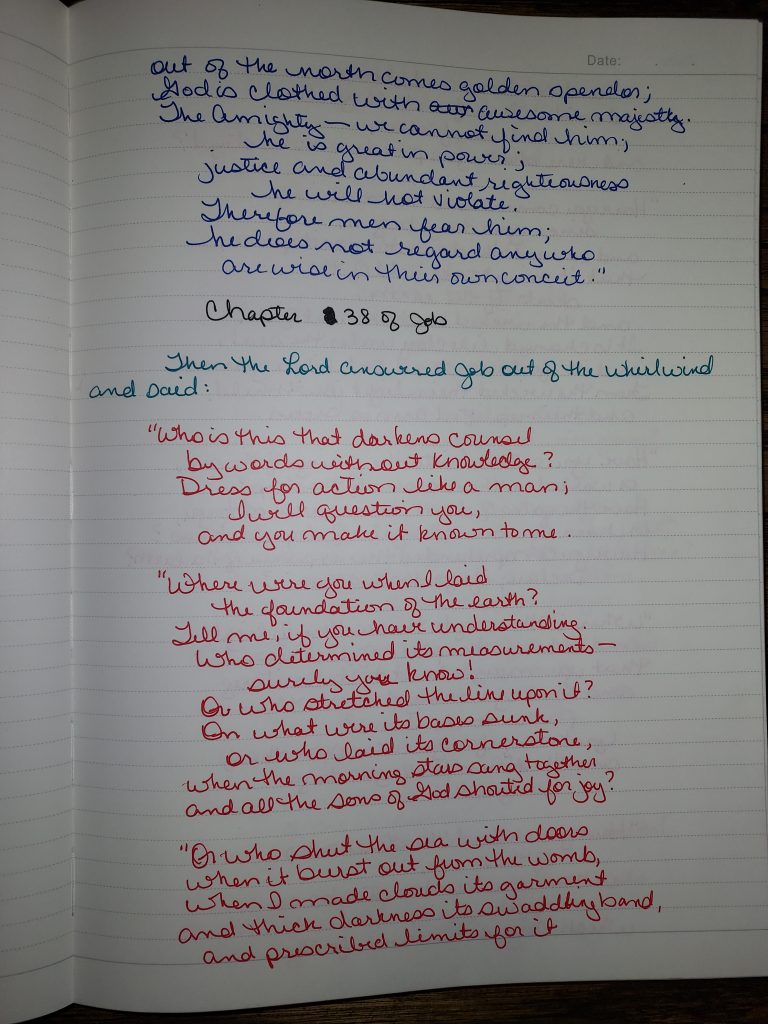 Date:
out of the north comes golden spendor;
God is clothed with awesome majestly.
The Amighty — we cannot find him;
he is great in power;
justice and abundant righteousness
he will not violate.
Therefore men fear him;
he does not regard any who
are wise in their own conceit."
Chapter 38 of Job
Then the Lord answered Job out of the whirlwind
and said:
"Who is this that darkens counsel
by words without knowledge?
Dress for action like a man;
I will question you,
and you make it known to me.
"Where were you when I laid
the foundation of the earth?
Tell me, if you have understanding.
Who determined its measurements —
surely you know!
Or who stretched the line upon it?
On what were its bases sunk,
or who laid its cornerstone,
when the morning stars sang together
and all the sons of God shouted for joy?
"Or who shut the sea with doors
when it burst out from the womb,
when I made clouds its garment
and thick darkness its swaddling band,
and prescribed limits for it